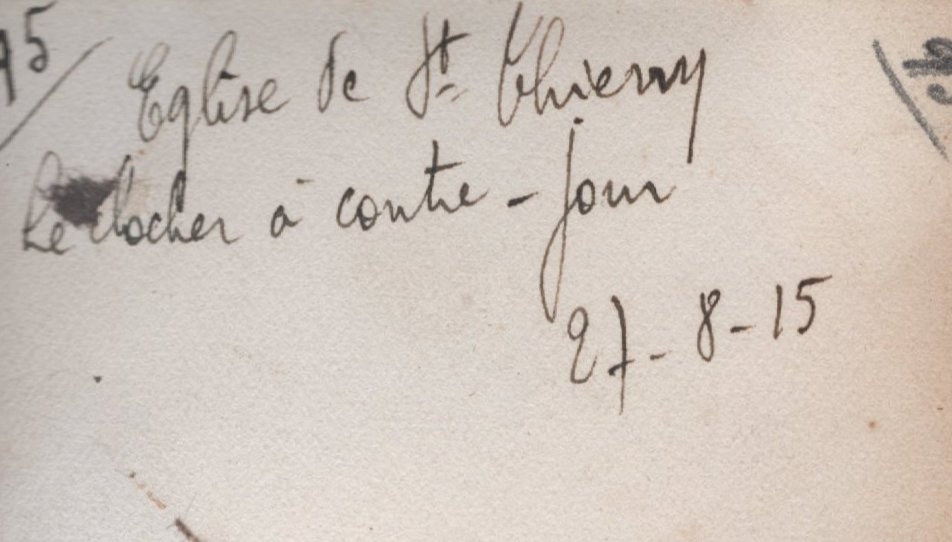 Eglise de St Thierry
Le clocher à contre-jour
27-8-15